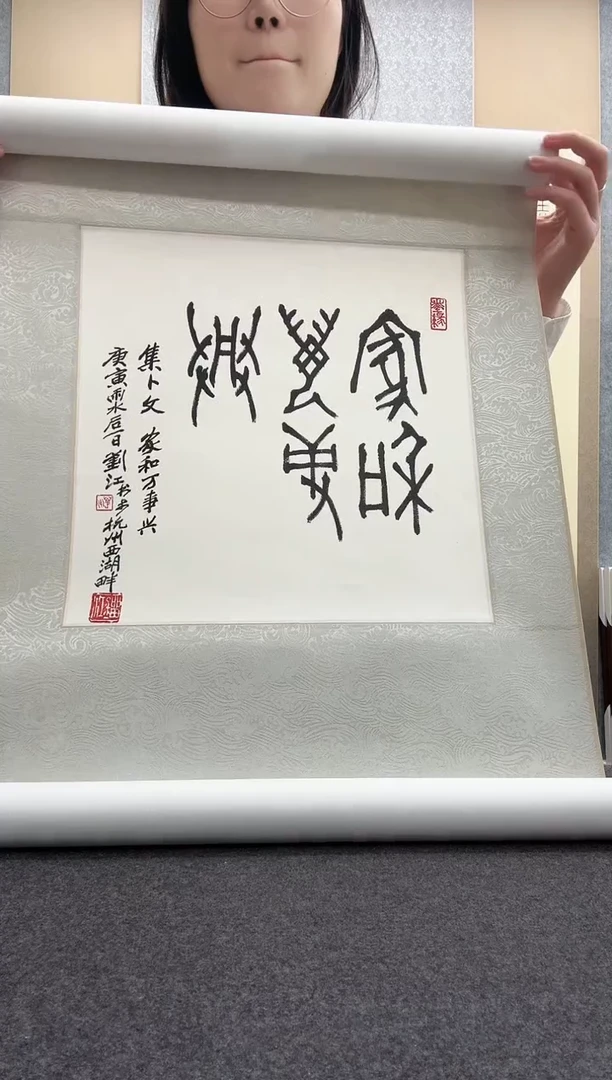 家和
萬事
興
集卜文 家和万事兴
庚寅 后一日 劉江书于杭州西湖畔